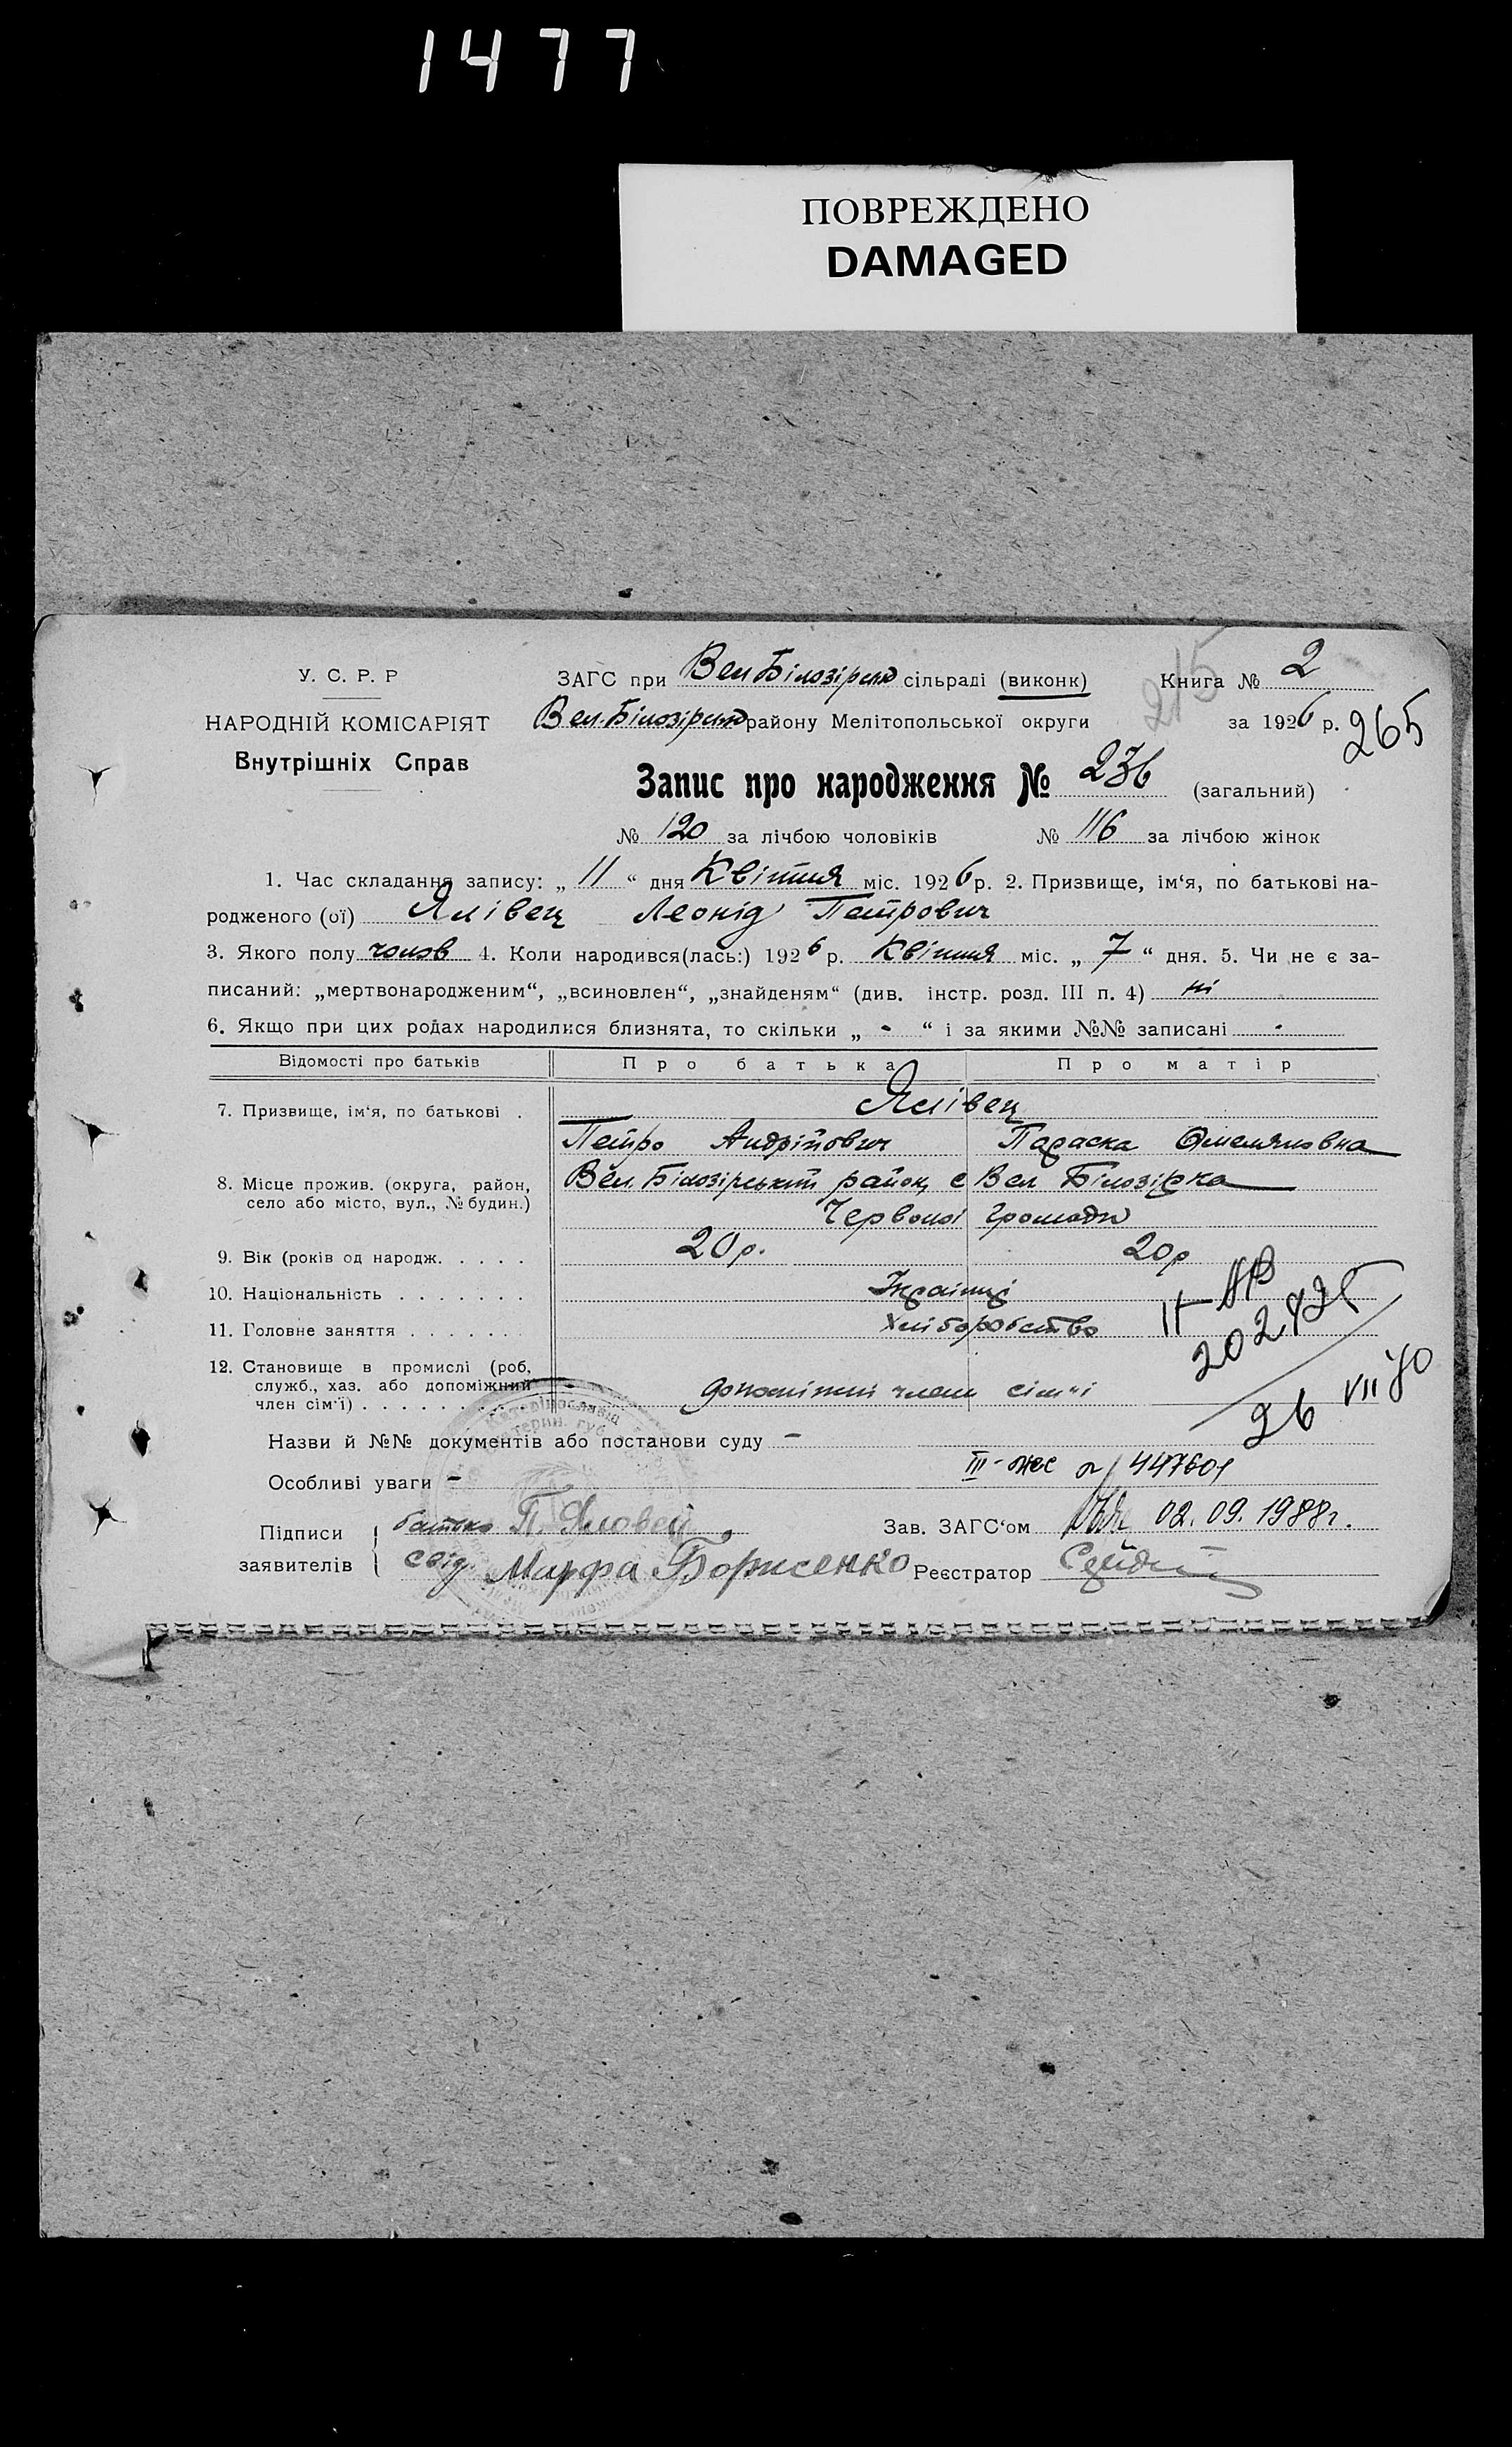 1477
ПОВРЕЖДЕНО
DAMAGED
У. С. Р. Р
НАРОДНІЙ КОМІСАРІЯТ
Внутрішніх Справ
ЗАГС при Вел Білозірськ сільраді (виконк)
Вел. Білозірськ району Мелітопольської округи
215
Книга № 2
за 1926 р.
265
Запис про народження № 236 (загальний)
№ 120 за лічбою чоловіків № 116 за лічбою жінок
1. Час складання запису: „ 11 “ дня Квітня міс. 1926 р. 2. Призвище, ім‘я, по батькові на-
родженого (ої) Ялівец Леонід Петрович
3. Якого полу чолов 4. Коли народився(лась:) 1926 р. Квітня міс. „ 7 “ дня. 5. Чи не є за-
писаний: „мертвонародженим“, „всиновлен“, „знайденям“ (див. інстр. розд. III п. 4) ні
6. Якщо при цих родах народилися близнята, то скільки „ - “ і за якими №№ записані -
Відомості про батьків Про батька Про матір
7. Призвище, ім‘я, по батькові . Ялівец
Петро Андрійович Параска Омеляновна
8. Місце прожив. (округа, район, Вел. Білозірський район, с Вел Білозірка
село або місто, вул., № будин.) Червоної громади
9. Вік (років од народж. . . . . 20 р. 20 р
10. Національність . . . . . . . Українці
11. Головне заняття . . . . . . . Хліборобство
II-АР
202425
26 VII 80
12. Становище в промислі (роб,
служб., хаз. або допоміжний
член сім‘ї) . . . . . . . . допоміжні члени сім'ї
Назви й №№ документів або постанови суду -
Особливі уваги -
III-жс 447601
Підписи
заявителів
батько П. Яловец
свід. Марфа Борисенко
Зав. ЗАГС‘ом 02.09.1988г.
Реєстратор